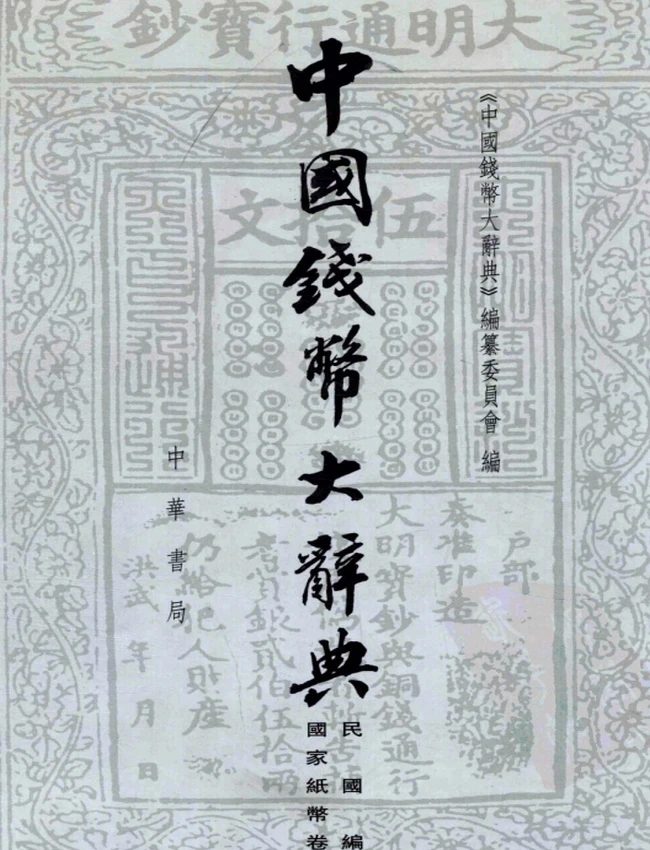 《中國錢幣大辭典》編纂委員會 編
中國錢幣大辭典
民國編
國家紙幣卷
中華書局
大明通行寶鈔
伍拾文
户部
奏准印造
大明寶鈔與銅錢通行
仍給犯人財產
洪武 年 月 日